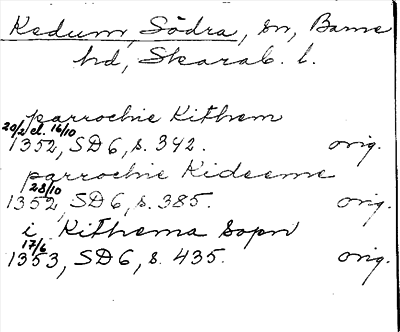 Kedum, Södra, sn, Barne
hd, Skarab. l.
parrochie Kithem
20/2 el. 16/10
1352, SD 6, s. 342. orig.
parrochie Kideeme
23/10
1352, SD 6, s. 385. orig.
i Kithema sopn
17/6
1353, SD 6, s. 435. orig.